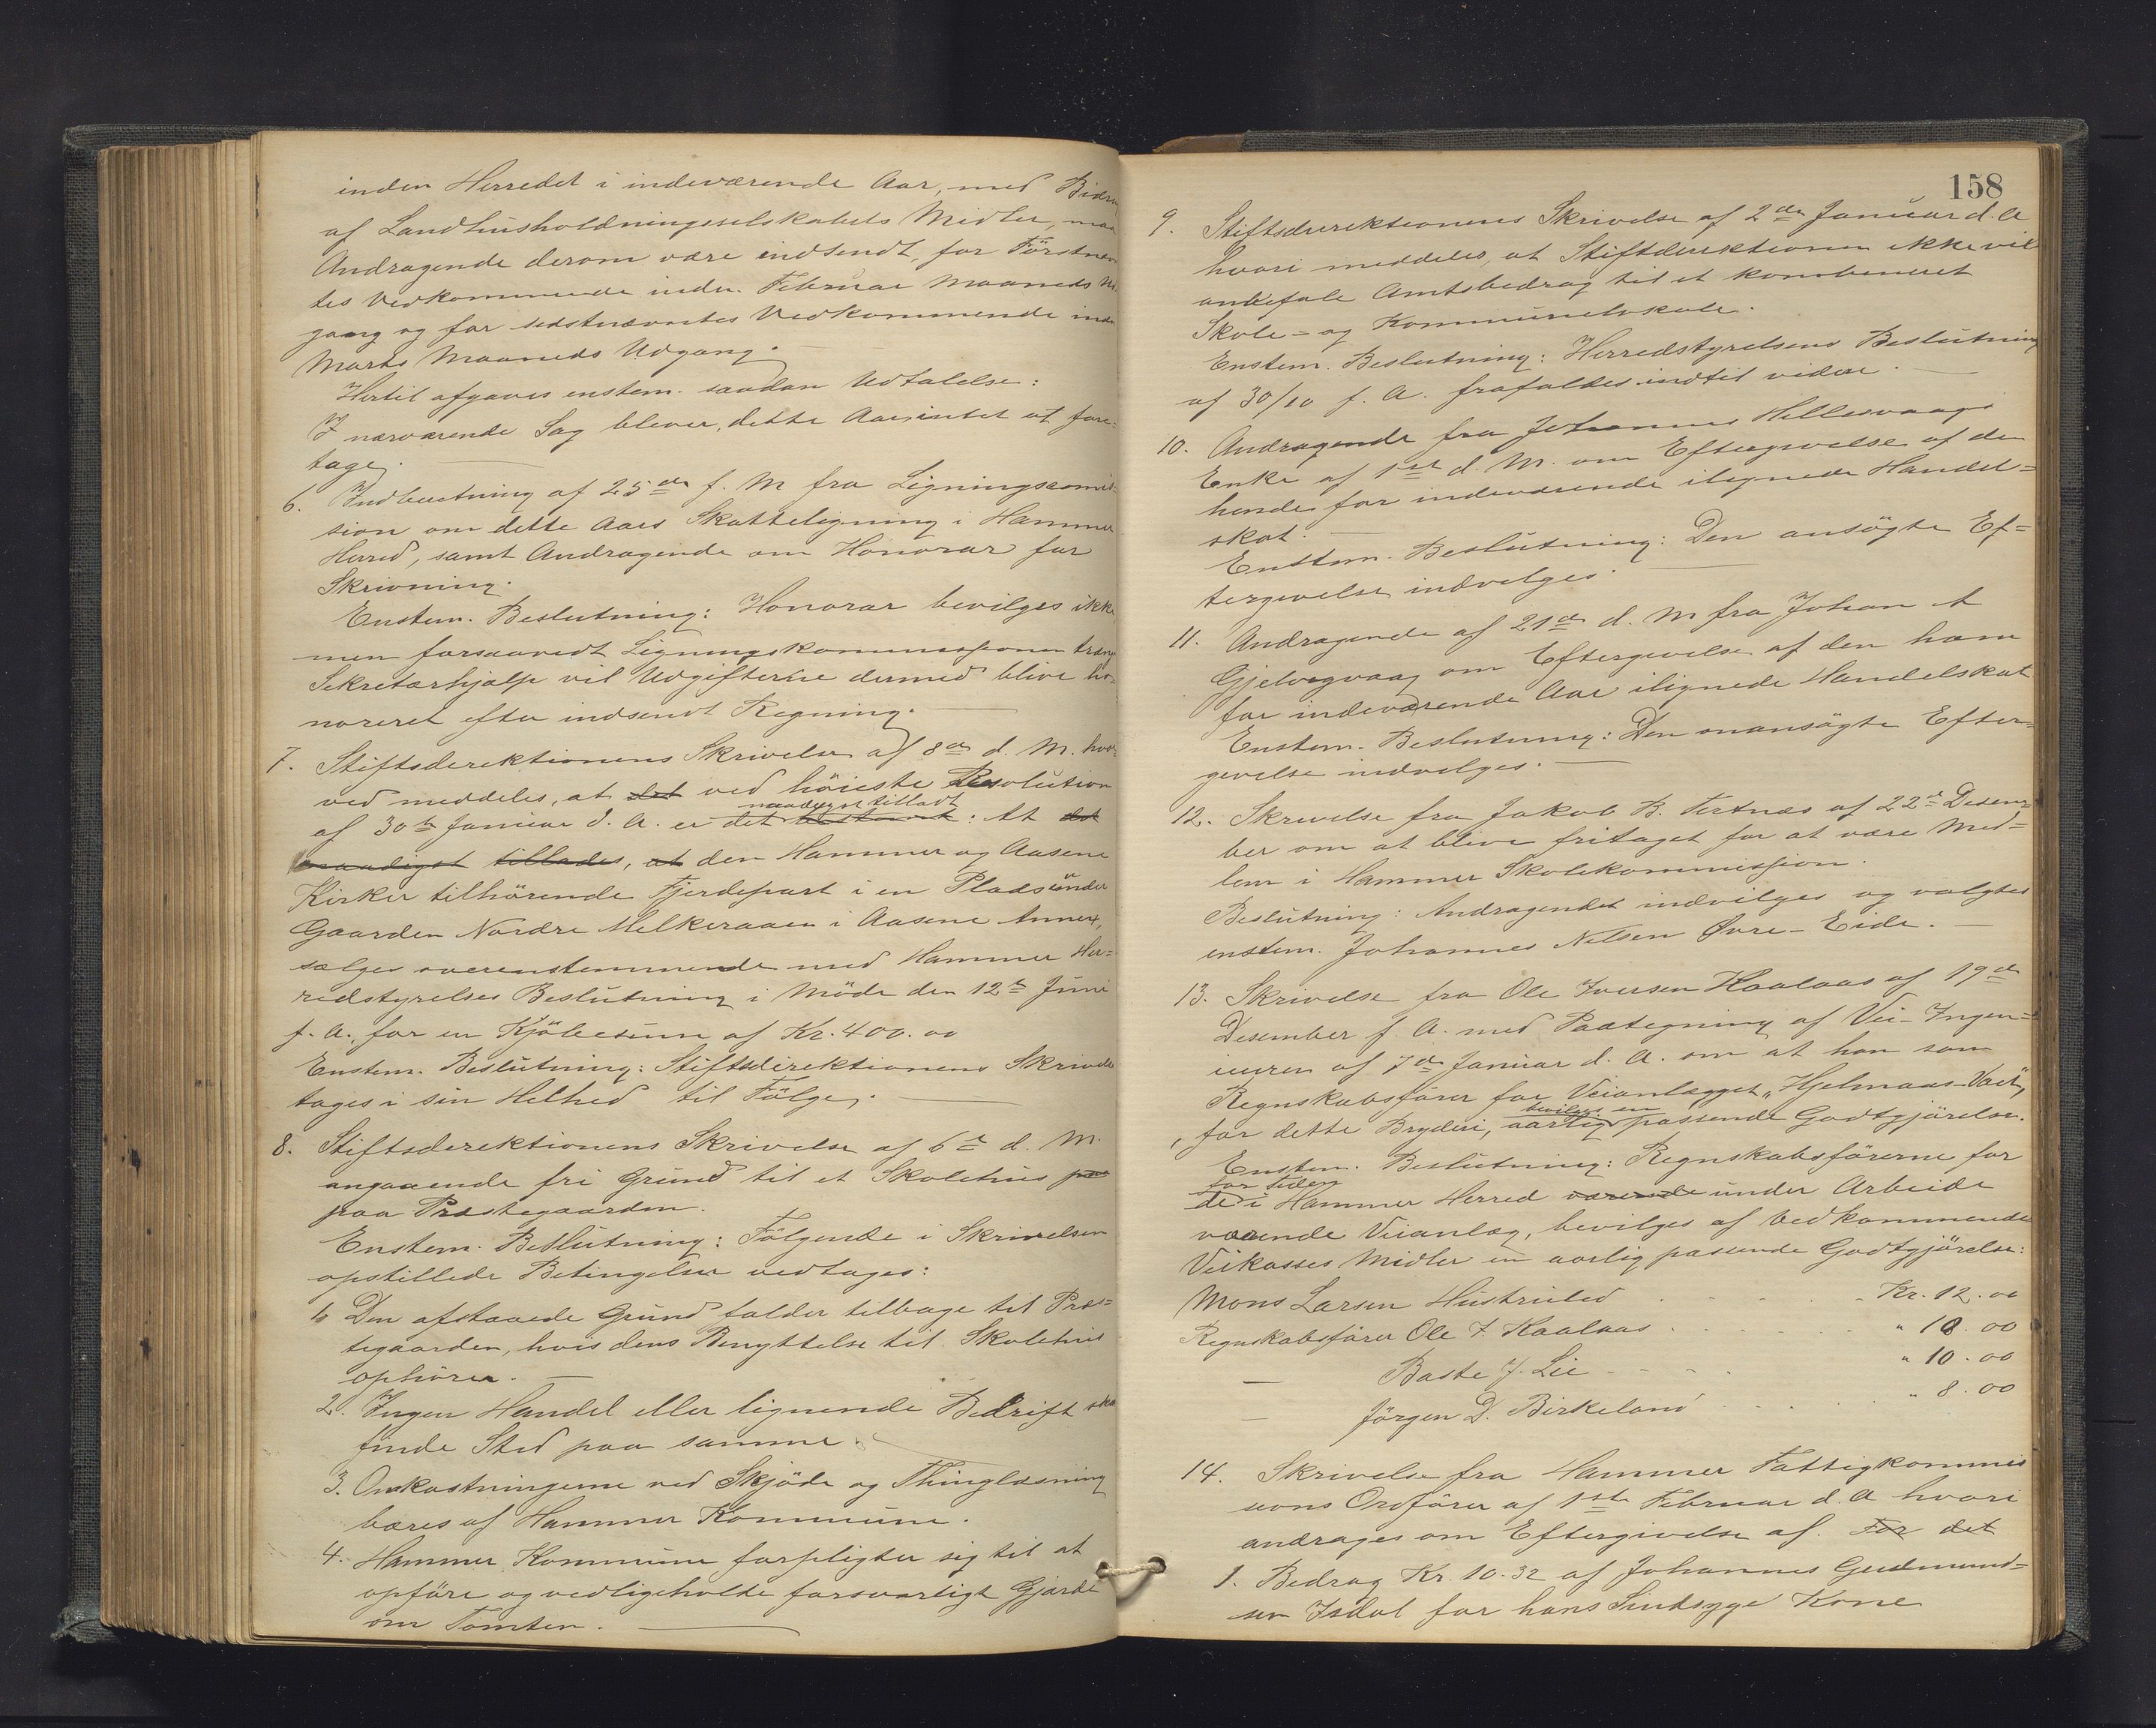 inden Herredet i indeværende Aar, med Bidrag
af Landhusholdningsselskabets Midler, maa
Andragende derom være indsendt, for Förstnævn
tes Vedkommende inden Februar Maaneds Ud
gang og for sidstnævntes Vedkommende inden
Marts Maaneds Udgang.
Hertil afgaves enstem. saadan Udtalelse:
I nærværende Sag bliver, dette Aar, intet at fore-
tage.
6. Indberetning af 25de f. M fra Ligningscomis-
sion om dette Aars Skatteligning i Hammer
Herred, samt Andragende om Honorar for
Skrivning.
Enstem. Beslutning: Honorar bevilges ikke
men forsaavidt Ligningskommissionen træng
Sekretærhjælp vil Udgifterne dermed blive ho-
noreret efter indsendt Regning.
7. Stiftsdirektionens Skrivelse af 8de d. M. hvor
ved meddeles, at det ved höieste Resolution
naadigst tilladt
af 30te Januar d. A. er det bestemt: At det
naadigst tillades, at den Hammer og Aasene
Kirker tilhörende Fjerdepart i en Plads under
Gaarden Nordre Melkeraaen i Aasene Annex,
sælges overenstemmende med Hammer Her-
redstyrelses Beslutning i Möde den 12te Juni
f. A., for en Kjöbesum af Kr. 400.00
Enstem. Beslutning: Stiftsdirektionens Skrivelse
tages i sin Helhed til Fölge.
8. Stiftsdirektionens Skrivelse af 6te d. M.
angaaende fri Grund til et Skolehus paa
paa Præstegaarden.
Enstem. Beslutning: Fölgende i Skrivelsen
opstillede Betingelser vedtages:
1. Den afstaaede Grund falder tilbage til Præs-
tegaarden, hvis dens Benyttelse til Skolehus
ophörer.
2. Ingen Handel eller lignende Bedrift skal
finde Sted paa samme.
3. Omkostningerne ved Skjöde og Thinglæsning
bæres af Hammer Kommune.
4. Hammer Kommune forpligter sig til at
opföre og vedligeholde forsvarligt Gjærde
om Tomten.
158
9. Stiftsdirektionens Skrivelse af 2den Januar d. A
hvori meddeles, at Stiftdirektionen ikke vil
anbefale Amtsbedrag til et kombineret
Skole- og Kommunelokale.
Enstem. Beslutning: Herredstyrelsens Beslutning
af 30/10 f. A. frafaldes indtil videre.
10. Andragende fra Johannes Hillesvaags
Enke af 1ste d. M. om Eftergivelse af den
hende for indeværende ilignede Handel-
skat.
Enstem. Beslutning: Den ansögte Ef-
tergivelse indvilges.
11. Andragende af 21de d. M fra Johan A
Gjelvogvaag om Eftergivelse af den ham
for indeværende Aar ilignede Handelskat
Enstem. Beslutning: Den onansögte Efter-
gevelse indvilges.
12. Skrivelse fra Jakob B. Tertnæs af 22de Desem-
ber om at blive fritaget for at være Med-
lem i Hammer Skolekommission.
Beslutning: Andragendet indvilges og valgtes
enstem. Johannes Nilsen Øvre-Eide.
13. Skrivelse fra Ole Iversen Kaalaas af 19de
Desember f. A. med Paategning af Vei-Ingen-
iören af 7de Januar d. A. om at han som
Regnskabsförer for Veianlægget „Hjelmaas-Vaet",
bevilges en
for dette Bryderi, aarlig passende Godtgjörelse.
Enstem. Beslutning: Regnskabsförerne for
for tiden
de i Hammer Herred værende under Arbeide
værende Veianlæg, bevilges af Vedkommende
Veikasses Midler en aarlig passende Godtgjörelse:
Mons Larsen Hustruled Kr. 12.00
Regnskabsförer Ole I. Kaalaas " 18.00
— Baste J. Lie " 10.00
— Jörgen D. Birkeland " 8.00
14. Skrivelse fra Hammer Fattigkommis
sions Ordförer af 1ste Februar d. A hvori
andrages om Eftergivelse af. For det
1. Bedrag Kr. 10.32 af Johannes Gudmund-
sen Isdal for hans Sindsyge Kone